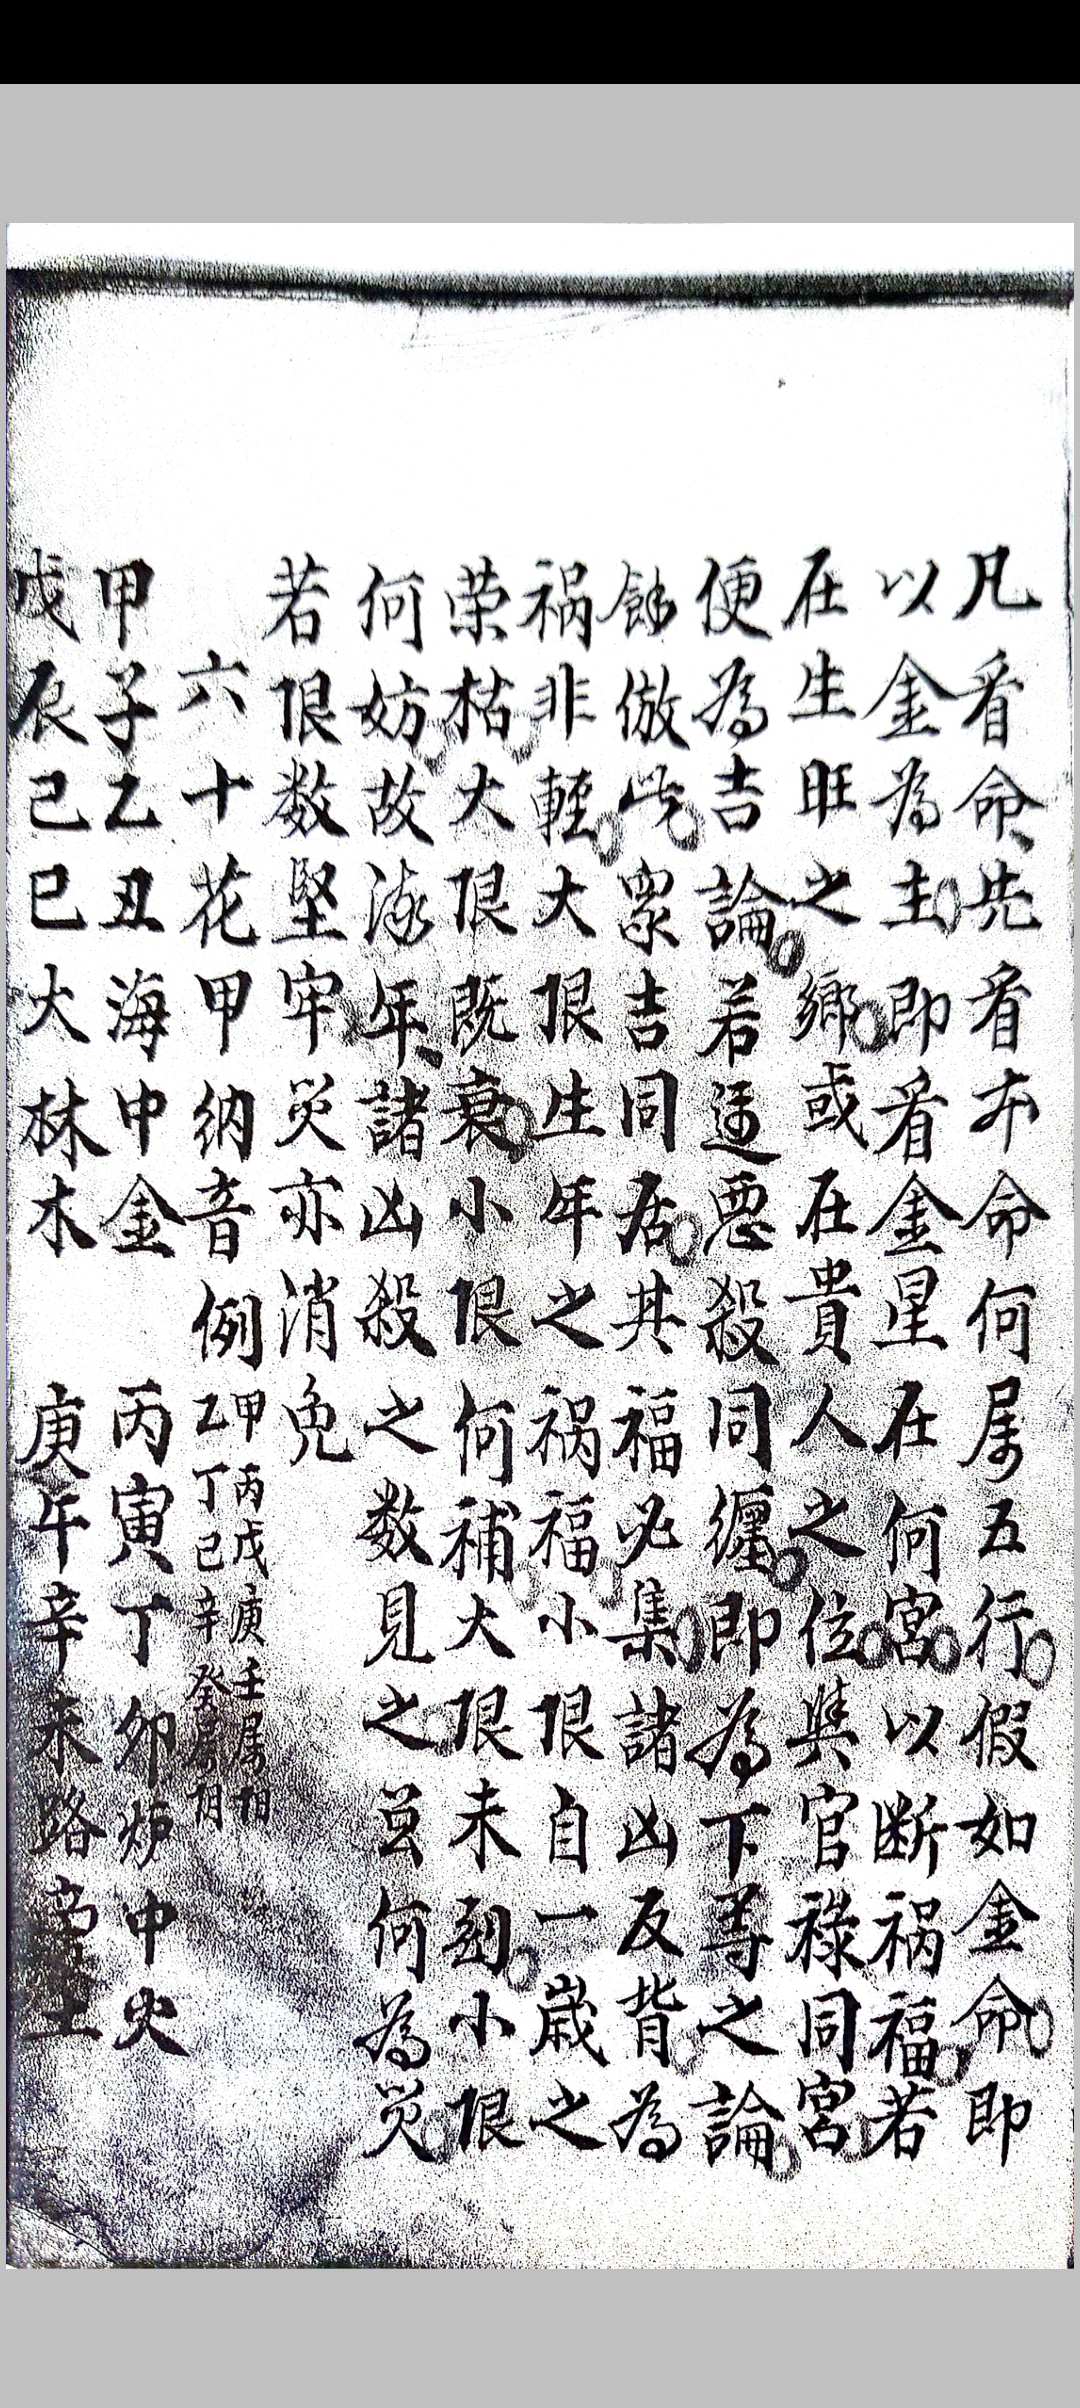 凡看命先看本命何属五行假如金命即
以金為主即看金星在何宮以断祸福若
在生旺之鄉或在貴人之位與官祿同宮
便為吉論若逢惡殺同纏即為下等之論
餘倣此眾吉同居其福必集諸凶反背為
祸非輕大限生年之祸福小限自一歲之
荣枯大限既衰小限何補大限未到小限
何妨故流年諸凶殺之数見之豈何為災
若限数堅牢災亦消免
六十花甲納音例
甲丙戊庚壬属阳
乙丁己辛癸属阴
甲子乙丑海中金 丙寅丁卯炉中火
戊辰己巳大林木 庚午辛未路旁土